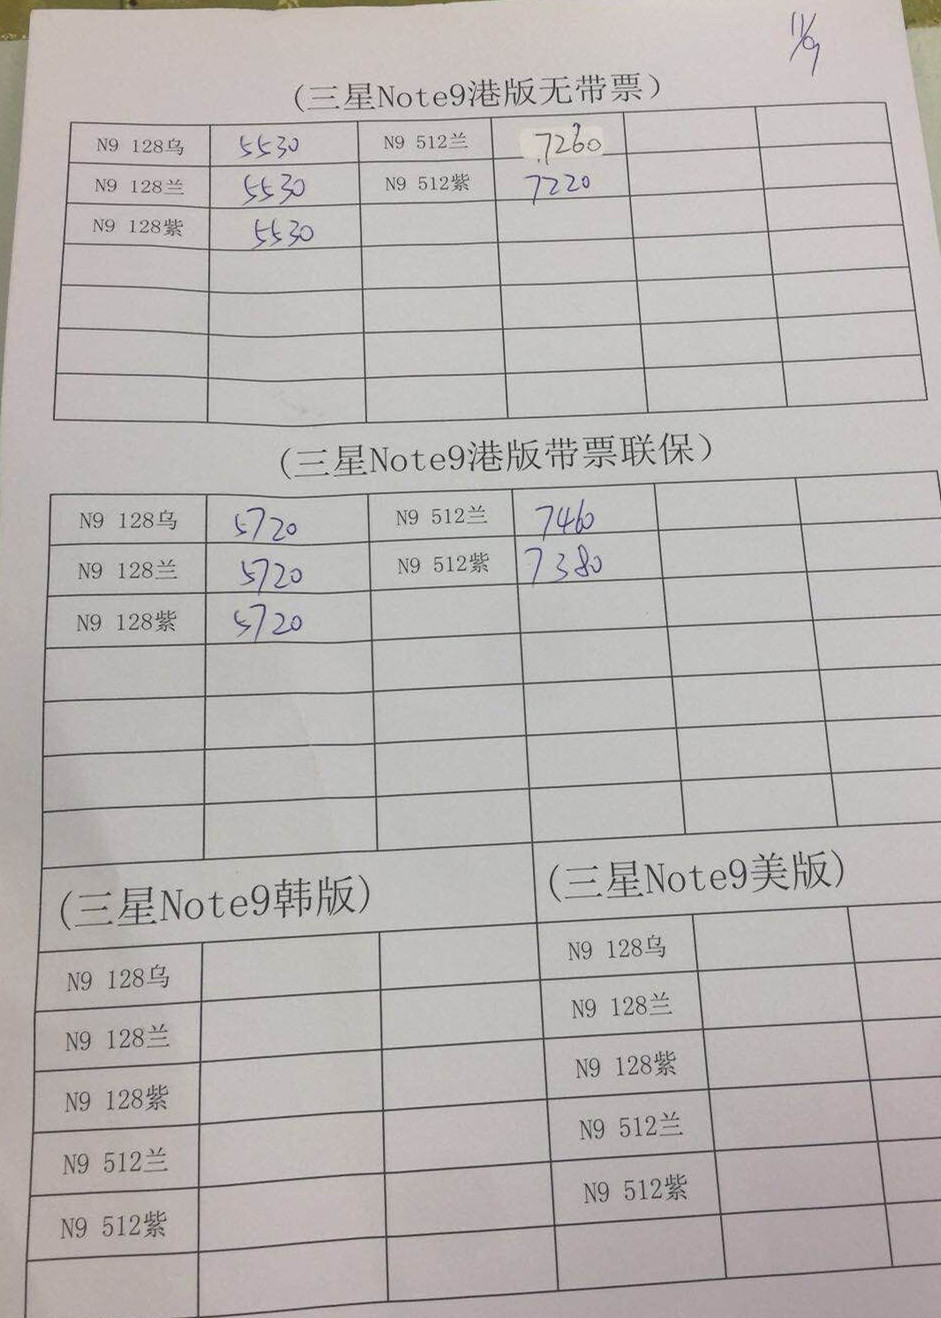 11/9
(三星Note9港版无带票)
N9 128乌 5530 N9 512兰 7260
N9 128兰 5530 N9 512紫 7220
N9 128紫 5530
(三星Note9港版带票联保)
N9 128乌 5720 N9 512兰 7460
N9 128兰 5720 N9 512紫 7380
N9 128紫 5720
(三星Note9韩版) (三星Note9美版)
N9 128乌 N9 128乌
N9 128兰 N9 128兰
N9 128紫 N9 128紫
N9 512兰 N9 512兰
N9 512紫 N9 512紫